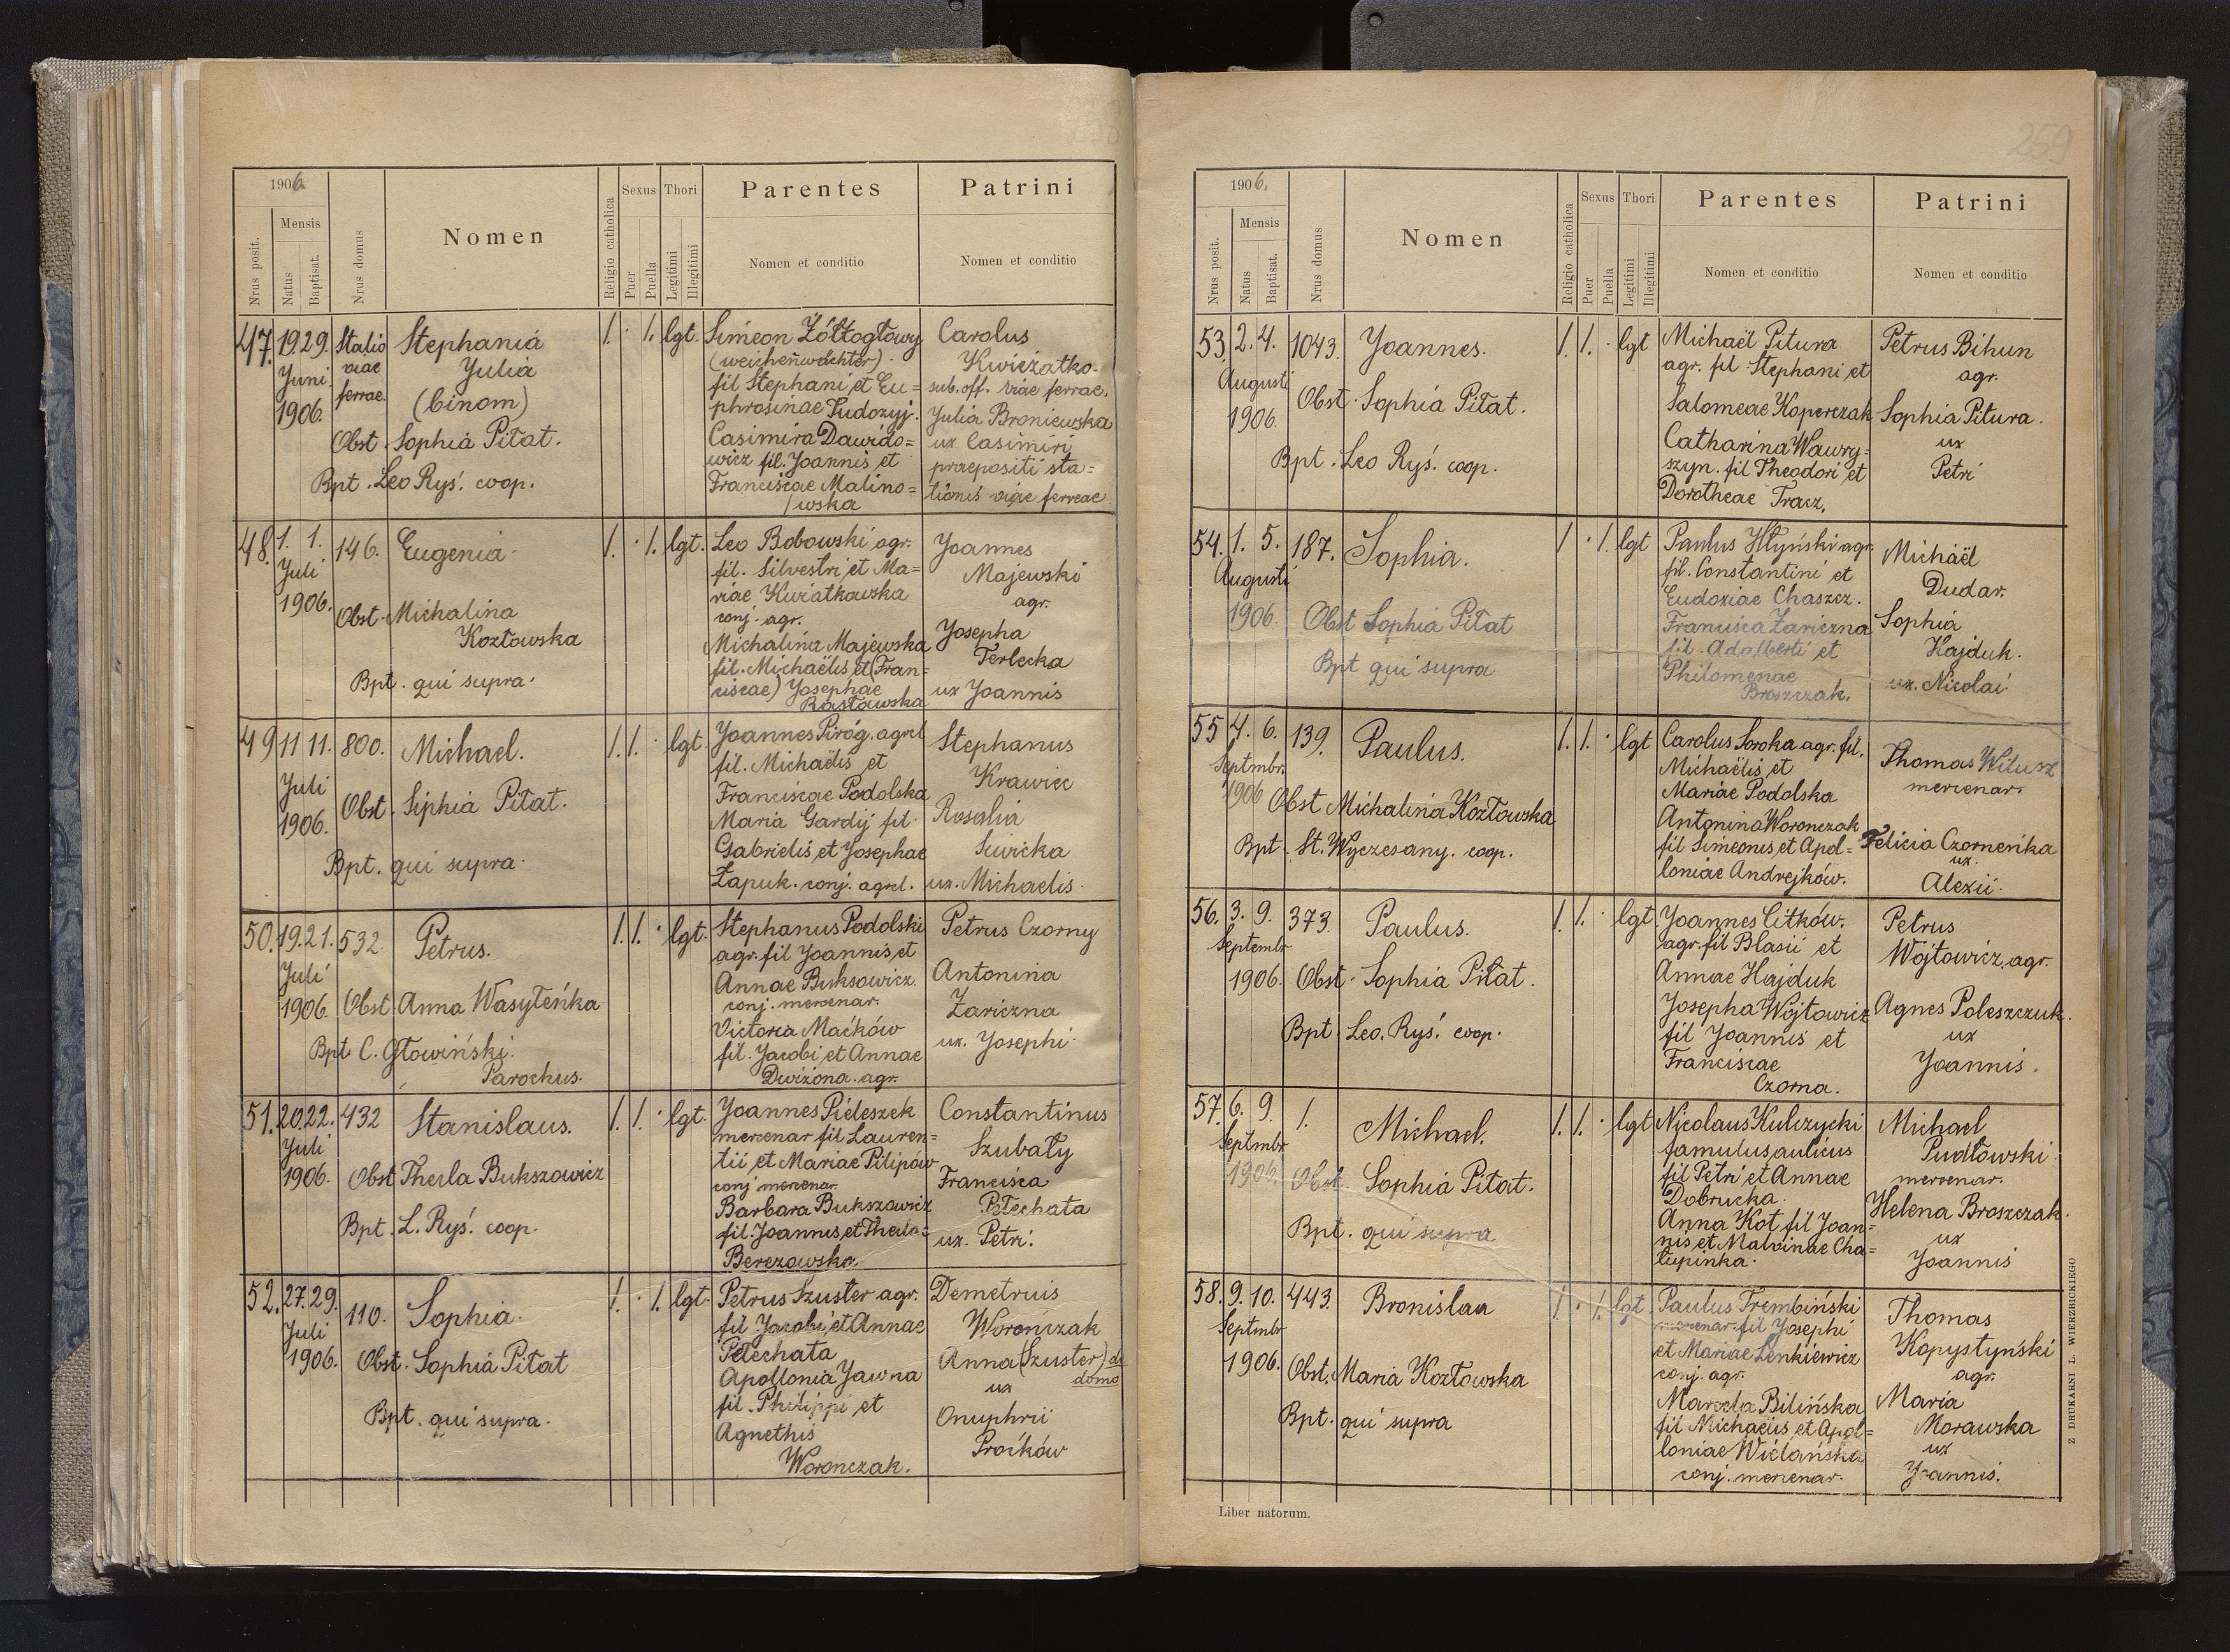 1906
Nrus posit.
Mensis
Natus
Baptisat.
Nrus domus
Nomen
Religio catholica
Sexus
Puer
Puella
Thori
Legitimi
Illegitimi
Parentes
Nomen et conditio
Patrini
Nomen et conditio
47. 19. 29. Juni 1906.
Statio viae ferrae
Stephania
Julia
(binom)
Obst. Sophia Pitat.
Bpt. Leo Ryś. coop.
1. · 1. lgt.
Simeon Żółtogłowy
(weichenwächter)
fil Stephani et Eu=
phrosinae Sudozyj.
Casimira Dawido=
wicz fil. Joannis et
Franciscae Malino=
/wska
Carolus
Kwieżatko
sub. off. viae ferrae.
Julia Broniewska
ux Casimiri
praepositi sta=
tionis viae ferreae
48. 1. 1. Juli 1906.
146.
Eugenia.
Obst. Michalina
Kozłowska
Bpt. qui supra.
1. · 1. lgt.
Leo Bobowski agr.
fil. Silvestri et Ma=
riae Kwiatkowska
conj. agr.
Michalina Majewska
fil. Michaëlis et (Fran=
ciscae) Josephae
Rastawska
Joannes
Majewski
agr.
Josepha
Terlecka
ux Joannis
49 11 11. Juli 1906.
800.
Michael.
Obst. Siphia Pitat.
Bpt. qui supra.
1. 1. · lgt
Joannes Piróg. agrcl
fil. Michaëlis et
Franciscae Podolska
Maria Gardij fil.
Gabrielis et Josephae
Łapuk. conj. agrcl.
Stephanus
Krawiec
Rosalia
Siwicka
ux. Michaelis.
50. 19. 21. Juli 1906.
532.
Petrus.
Obst. Anna Wasyleńka
Bpt C. Głowiński.
Parochus.
1. 1. · lgt.
Stephanus Podolski
agr. fil Joannis et
Annae Buksowicz
conj. mercenar.
Victoria Maćków
fil. Jacobi et Annae
Dwiżona. agr.
Petrus Czorny
Antonina
Zariczna
ux. Josephi.
51. 20. 22. Juli 1906.
432
Stanislaus.
Obst Thecla Bukszowicz
Bpt. L. Ryś. coop.
1. 1. · lgt.
Joannes Pieleszek
mercenar fil Lauren=
tii et Mariae Pilipów
conj mercenar.
Barbara Bukszowicz
fil. Joannis et Theclae
Berezowska.
Constantinus
Szubały
Francisca
Petechata
ux. Petri.
52. 27. 29. Juli 1906.
110.
Sophia.
Obst. Sophia Pitat
Bpt. qui supra.
1. · 1. lgt.
Petrus Szuster agr.
fil Jacobi et Annae
Petechata
Apollonia Jawna
fil. Philippi et
Agnethis
Woronczak.
Demetruis
Worończak
Anna (Szuster) de
domo
ux
Onuphrii
Proćków
259
1906.
Nrus posit.
Mensis
Natus
Baptisat.
Nrus domus
Nomen
Religio catholica
Sexus
Puer
Puella
Thori
Legitimi
Illegitimi
Parentes
Nomen et conditio
Patrini
Nomen et conditio
53 2. 4. Augusti 1906.
1043.
Joannes.
Obst. Sophia Pitat.
Bpt. Leo Ryś. coop.
1. 1. · lgt
Michaël Pitura
agr. fil Stephani et
Salomeae Koperczak
Catharina Wawry=
szyn. fil Theodori et
Dorotheae Tracz.
Petrus Bihun
agr.
Sophia Pitura.
ux
Petri
54. 1. 5. Augusti 1906.
187.
Sophia.
Obst Sophia Pitat
Bpt qui supra
1 · 1. lgt
Paulus Hłyński agr.
fil. Constantini et
Eudoxiae Chaszcz.
Francisca Zariczna
fil. Adalberti et
Philomenae
Broszczak.
Michaël
Dudar.
Sophia
Hajduk.
ux. Nicolai
55 4. 6. Septmbr. 1906
139.
Paulus.
Obst Michalina Kozłowska
Bpt. St. Wyczesany. coop.
1. 1. · lgt
Carolus Soroka agr. fil.
Michaëlis et
Mariae Podolska
Antonina Woronczak
fil Simeonis et Apol=
loniae Andrejków.
Thomas Wilusz
mercenar.
Felicia Czorneńka
ux.
Alexii.
56. 3. 9. Septembr 1906.
373.
Paulus.
Obst. Sophia Pitat.
Bpt. Leo. Ryś. coop.
1. 1. · lgt
Joannes Citków.
agr. fil Blasii et
Annae Hajduk
Josepha Wojtowicz
fil Joannis et
Franciscae
Czorna.
Petrus
Wojtowicz. agr.
Agnes Poleszczuk.
ux
Joannis.
57. 6. 9. Septmbr 1906.
1.
Michael.
Obst. Sophia Pitat.
Bpt. qui supra
1. 1. · lgt
Nicolaus Kulczycki
famulus aulicus
fil Petri et Annae
Dobrucka.
Anna Kot fil Joan=
nis et Malvinae Cha=
łupinka.
Michael
Pudłowski
mercenar.
Helena Broszczak.
ux
Joannis
58. 9. 10. Septmbr 1906.
443.
Bronislaa
Obst. Maria Kozłowska
Bpt. qui supra
1. · 1. lgt.
Paulus Trembiński
mercenar. fil Josephi
et Mariae Lenkiewicz
conj. agr.
Marcela Bilińska
fil Michaëlis et Apol=
loniae Wiclańska
conj. mercenar.
Thomas
Kopystyński
agr.
Maria
Morawska
ux
Joannis.
Liber natorum.
Z DRUKARNI L. WIERZBICKIEGO